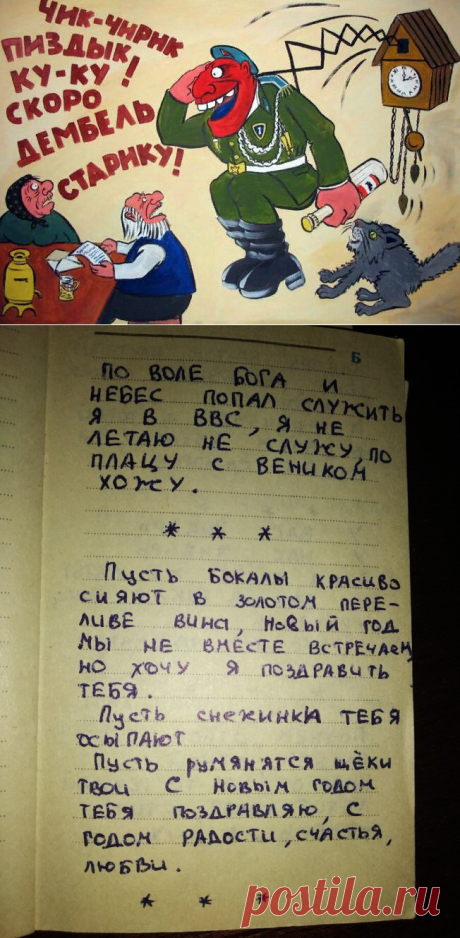 ЧИК-ЧИРИК
ПИЗДЫК!
КУ-КУ!
СКОРО
ДЕМБЕЛЬ
СТАРИКУ!
Б
ПО ВОЛЕ БОГА И
НЕБЕС ПОПАЛ СЛУЖИТЬ
Я В ВВС, Я НЕ
ЛЕТАЮ НЕ СЛУЖУ, ПО
ПЛАЦУ С ВЕНИКОМ
ХОЖУ.
* * *
Пусть БОКАЛЫ КРАСИВО
СИЯЮТ В ЗОЛОТОМ ПЕРЕ-
ЛИВЕ ВИНА, НОВЫЙ ГОД
МЫ НЕ ВМЕСТЕ ВСТРЕЧАЕМ
НО ХОЧУ Я ПОЗДРАВИТЬ
ТЕБЯ.
Пусть СНЕЖИНКИ ТЕБЯ
ОСЫПАЮТ
Пусть РУМЯНЯТСЯ ЩЁКИ
ТВОИ С НОВЫМ ГОДОМ
ТЕБЯ ПОЗДРАВЛЯЮ, С
ГОДОМ РАДОСТИ, СЧАСТЬЯ,
ЛЮБВИ.
* * *
postila.ru